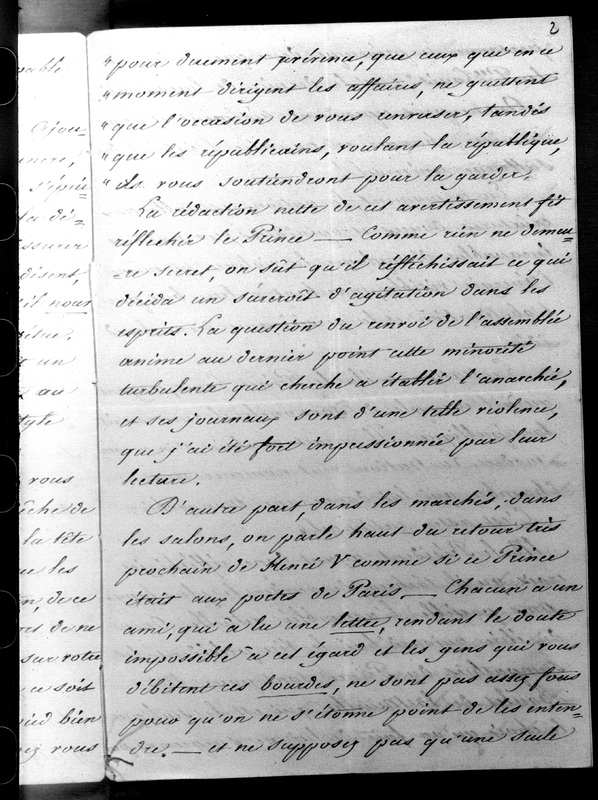 2
"pour duement prévenu, que ceux qui en ce
"moment dirigent les affaires, ne guettent
"que l'occasion de vous renverser, tandés
"que les républicains, voulant la république,
"ils vous soutiendront pour la garder.
La rédaction nette de cet avertissement fit
réflechir le Prince — Comme rien ne demeu-
-re secret, on sût qu'il réfléchissait ce qui
décida un surcroît d'agitation dans les
esprits. La question du renvoi de l'assemblée
anime au dernier point cette minorité
turbulente qui cherche a établir l'anarchie,
et ses journaux sont d'une telle violence,
que j'ai été fort impressionnée par leur
lecture.
D'autre part, dans les marchés, dans
les salons, on parle haut du retour très
prochain de Henri V comme si ce Prince
était aux portes de Paris. — Chacun a un
ami, qui a lu une lettre, rendant le doute
impossible à cet égard et les gens qui vous
débitent ces bourdes, ne sont pas assez fous
pour qu'on ne s'étonne point de les enten-
dre. — et ne supposez pas qu'une seule
pable
Ajou-
s'épui-
la dé-
ssurer
disent,
il nous
t un
x au
style
vous
che de
la tête
ue les
n, de ce
rs de ne
sur votre
ce soit
ied bien
ez vous